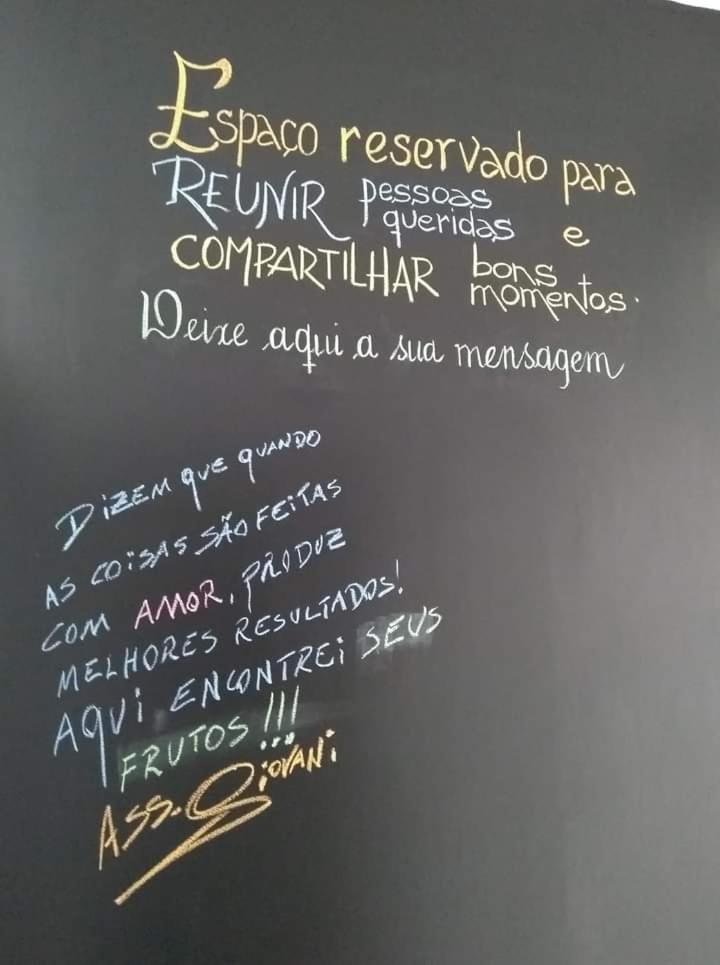 Espaço reservado para
REUNIR pessoas queridas e
COMPARTILHAR bons momentos.
Deixe aqui a sua mensagem
DIZEM QUE QUANDO
AS COISAS SÃO FEITAS
COM AMOR, PRODUZ
MELHORES RESULTADOS!
AQUI ENCONTREI SEUS
FRUTOS!!!
ASS. GIOVANI